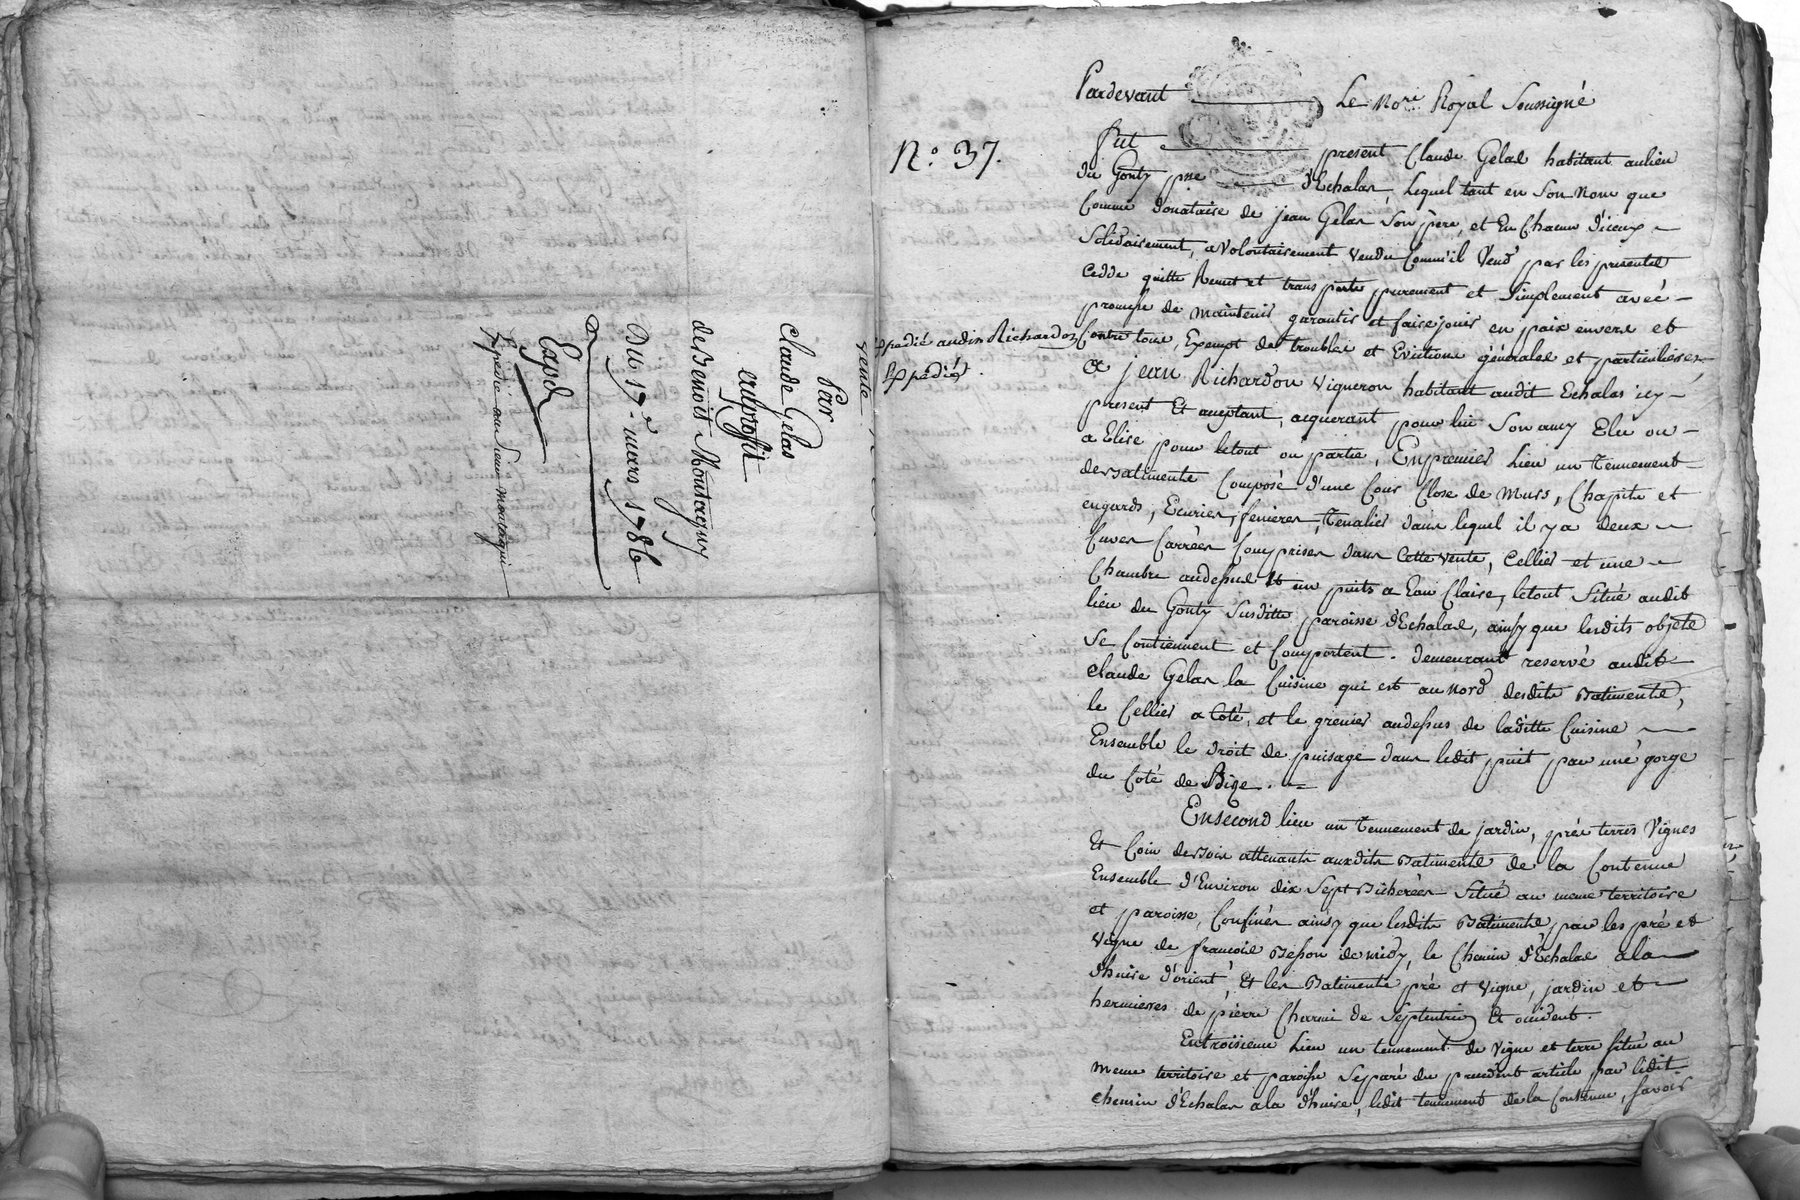 vente
Par
Claude Gelas
au profit
de Benoit Montagny
Du 17e. mars 1786
Expd
Expedié au sieur Montagni
N.o 37.
Expedié audin Richardon
Expedié.
Pardevant Le Nore Royal Soussigné
fut present Claude Gelas habitant au lieu
du Gonty psse d'Echalas, Lequel tant en Son Nom que
Comme donataire de jean Gelas Son père, et En Chacun d'iceux
Solidairement, a Volontairement Vendu Comm'il Vend par les presentes
Cedde quitte Remet et transporte purement et Simplement avec
promesse de maintenir garantir et faire jouir en paix envers et
Contre tous, Exempt de troubles et Evictions générales et particulieres,
a jean Richardon Vigneron habitant audit Echalas icy
present Et acceptant, acquerant pour lui Son amy Elu ou
a Elire pour le tout ou partie, En premier Lieu un Tennement
de Batiments Composé d'une Cour Close de Murs, Chapite et
engards, Ecuries, fenieres, Tenalier dans lequel il y a deux
Cuves Carrées Comprises dans Cette vente, Cellier et une
Chambre audessus Et un puits a Eau Claire, le tout Situé audit
lieu du Gonty Susditte paroisse d'Echalas, ainsy que lesdits objets
Se Contiennent et Comportent. demeurant reservé audit
Claude Gelas la Cuisine qui est au Nord desdits Batiments,
le Cellier a Coté, et le grenier audessus de laditte Cuisine
Ensemble le droit de puisage dans ledit puit par une gorge
du Coté de Bize.
En Second lieu un Tennement de jardin, prés terres Vignes
Et Coin de Bois attenants auxdits Batiments de la Contenue
Ensemble d'Environ dix Sept Bicherées Situé au meme territoire
et paroisse, Confinés ainsy que lesdits Batiments, par les pré et
Vigne de francois Besson de midy, le Chemin d'Echalas a la
d'huire d'orient, Et les Batiments pré et Vigne, jardin et
hermieres de pierre Charmi de Septentrion Et occident.
En troisieme Lieu un tennement de Vigne et terre Situé au
meme territoire et paroisse Separé du precedent article par ledit
Chemin d'Echalas a la d'huire, ledit tennement de la Contenue, Savoir